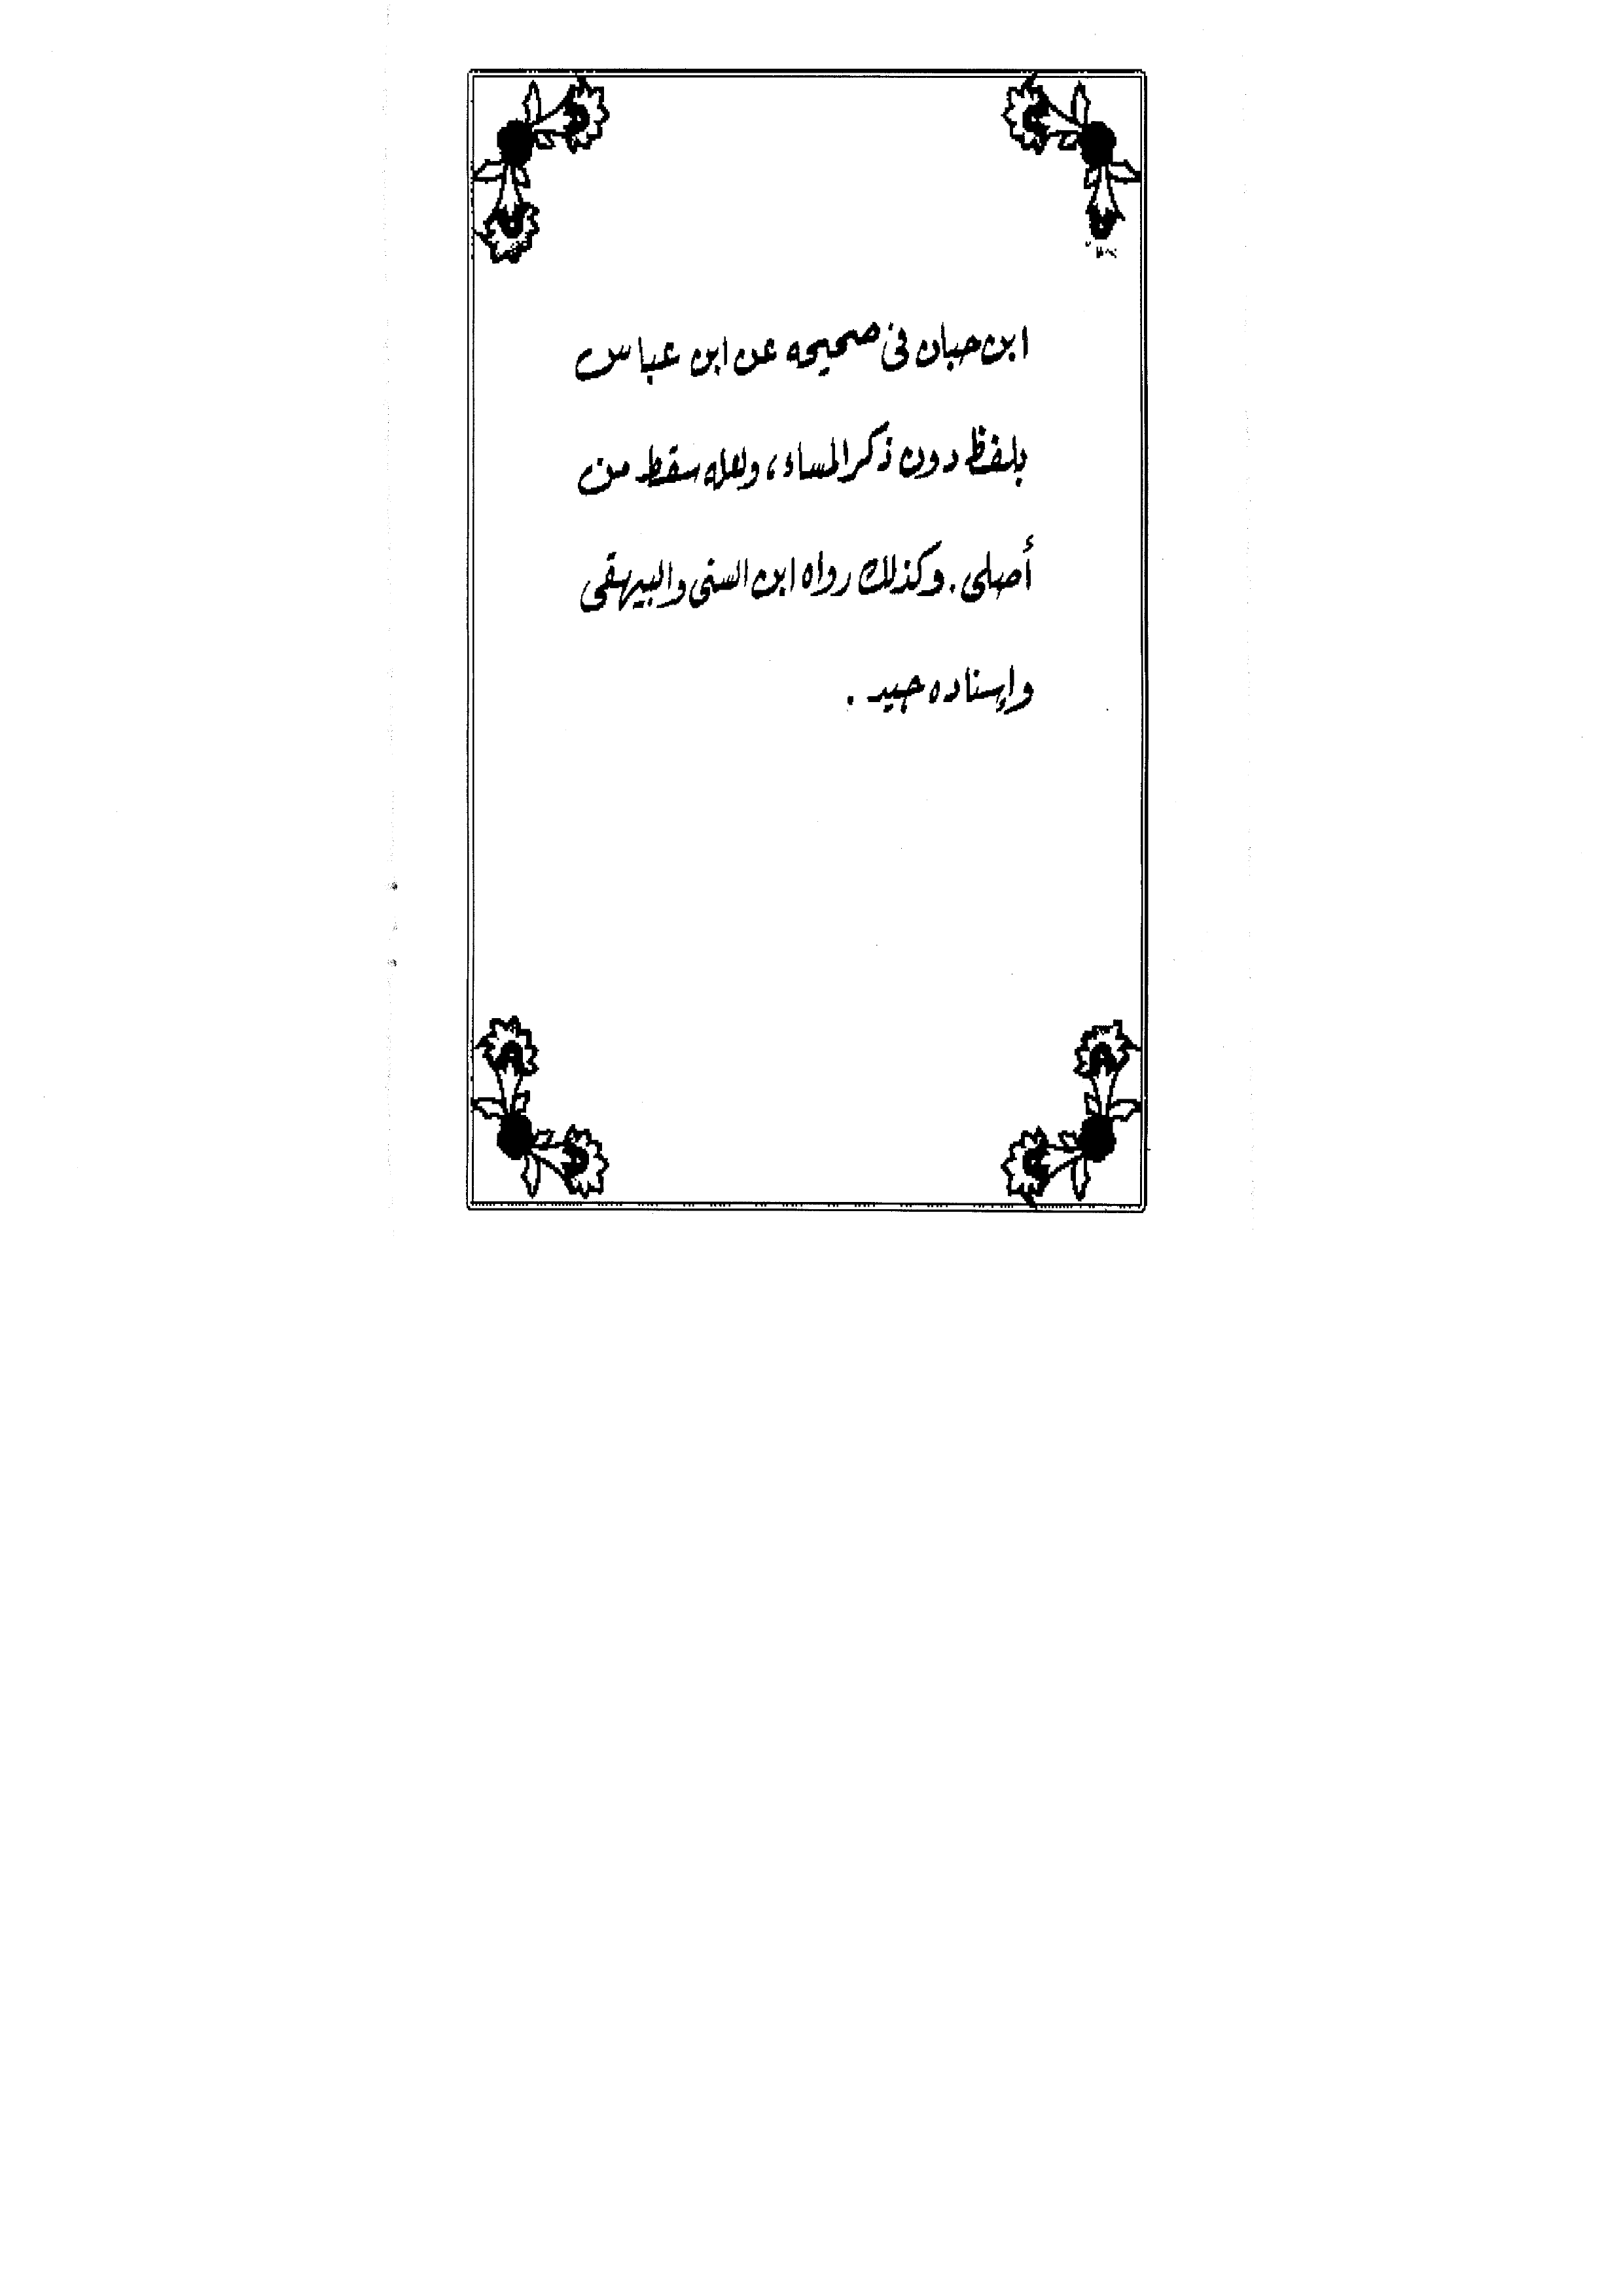 ابن حبان فى صحيحه عن ابن عباس
بلفظ دون ذكر المساء، ولعله سقط من
أصلى. وكذلك رواه ابن السنى والبيهقى
وإسناده جيد .